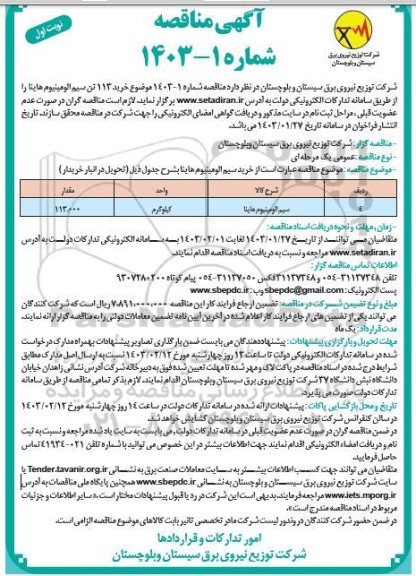 آگهی مناقصه
شماره ۱-۱۴۰۳
نوبت اول
شرکت توزیع نیروی برق
سیستان و بلوچستان
شرکت توزیع نیروی برق سیستان و بلوچستان در نظر دارد مناقصه شماره ۱-۱۴۰۳ موضوع خرید ۱۱۳ تن سیم آلومینیوم هاینا را
از طریق سامانه تدارکات الکترونیکی دولت به آدرس www.setadiran.ir برگزار نماید. لازم است مناقصه گران در صورت عدم
عضویت قبلی، مراحل ثبت نام در سایت مذکور و دریافت گواهی امضای الکترونیکی را جهت شرکت در مناقصه محقق سازند. تاریخ
انتشار فراخوان در سامانه تاریخ ۱۴۰۳/۰۱/۲۷ می باشد.
- مناقصه گزار: شرکت توزیع نیروی برق سیستان و بلوچستان
- نوع مناقصه: عمومی یک مرحله ای
- موضوع مناقصه: موضوع مناقصه عبارت است از خرید سیم آلومینیوم هاینا بشرح جدول ذیل (تحویل در انبار خریدار)
ردیف شرح کالا واحد مقدار
سیم آلومینیوم هاینا کیلوگرم ۱۱۳,۰۰۰
- زمان، مهلت و نحوه دریافت اسناد مناقصه:
متقاضیان می توانند از تاریخ ۱۴۰۳/۰۱/۲۷ لغایت ۱۴۰۳/۰۲/۰۱ به سامانه الکترونیکی تدارکات دولت به آدرس
www.setadiran.ir مراجعه و نسبت به دریافت اسناد مناقصه اقدام نمایند.
اطلاعات تماس مناقصه گزار:
تلفن ۳۱۱۳۷۳۴۸-۰۵۴ و ۳۱۱۳۷۳۴۸ فکس ۳۱۱۳۷۰۵۰-۰۵۴ پیام کوتاه ۹۳۰۷۲۸۰۲۰۰
پست الکترونیک: sbepdc@gmail.com وب: www.sbepdc.ir
مبلغ و نوع تضمین شرکت در مناقصه: تضمین ارجاع فرایند کار این مناقصه ۷,۸۹۱,۰۰۰,۰۰۰ ریال است که شرکت کنندگان
می توانند یکی از تضمین های ارجاع فرایند کار اعلام شده در آخرین آیین نامه تضمین معاملات دولتی را به مناقصه گزار ارائه نمایند.
مدت قرارداد: یک ماه
مهلت تحویل و بارگزاری پیشنهادات: پیشنهاددهندگان می بایست ضمن بارگذاری تصاویر پیشنهادات بهمراه مدارک درخواست
شده در سامانه تدارکات الکترونیکی دولت تا ساعت ۱۳ روز چهارشنبه مورخ ۱۴۰۳/۰۲/۱۲ نسبت به ارسال اصل مدارک مطابق
شرایط درج شده در اسناد مناقصه در پاکت لاک و مهر شده تا مهلت تعیین شده فوق به دبیرخانه شرکت آدرس نشانی زاهدان خیابان
دانشگاه نبش دانشگاه ۳۷ شرکت توزیع نیروی برق سیستان و بلوچستان اقدام نمایند. لازم بذکر تمامی مناقصه از طریق سامانه
تدارکات دولت صورت می پذیرد.
تاریخ و محل بازگشایی پاکات: پیشنهادات ارائه شده در سامانه تدارکات دولت در ساعت ۱۴ روز چهارشنبه مورخ ۱۴۰۳/۰۲/۱۲
در سالن کنفرانس شرکت توزیع نیروی برق سیستان و بلوچستان گشایش خواهد شد.
در ضمن مناقصه گران در صورت عدم عضویت قبلی در سامانه تدارکات دولت، می بایست به سایت یاد شده مراجعه و نسبت به ثبت
نام و دریافت امضاء الکترونیکی اقدام نمایند جهت اطلاعات بیشتر در این خصوص می توانید با شماره تلفن ۰۲۱-۴۱۹۳۴ تماس
حاصل فرمایید.
متقاضیان می توانند جهت کسب اطلاعات بیشتر به سایت معاملات صنعت برق به نشانی Tender.tavanir.org.ir یا
سایت شرکت توزیع نیروی برق سیستان و بلوچستان به نشانی www.sbepdc.ir همچنین پایگاه ملی مناقصات به آدرس
www.iets.mporg.ir مراجعه فرمایند. بدیهی است این شرکت در رد یا قبول پیشنهادات مختار است. سایر اطلاعات و جزئیات
مربوط در اسناد مناقصه مندرج است.
در ضمن حضور شرکت کنندگان در وندور لیست شرکت مادر تخصصی تانیر بابت کالاهای موضوع مناقصه الزامی است.
امور تدارکات و قراردادها
شرکت توزیع نیروی برق سیستان و بلوچستان